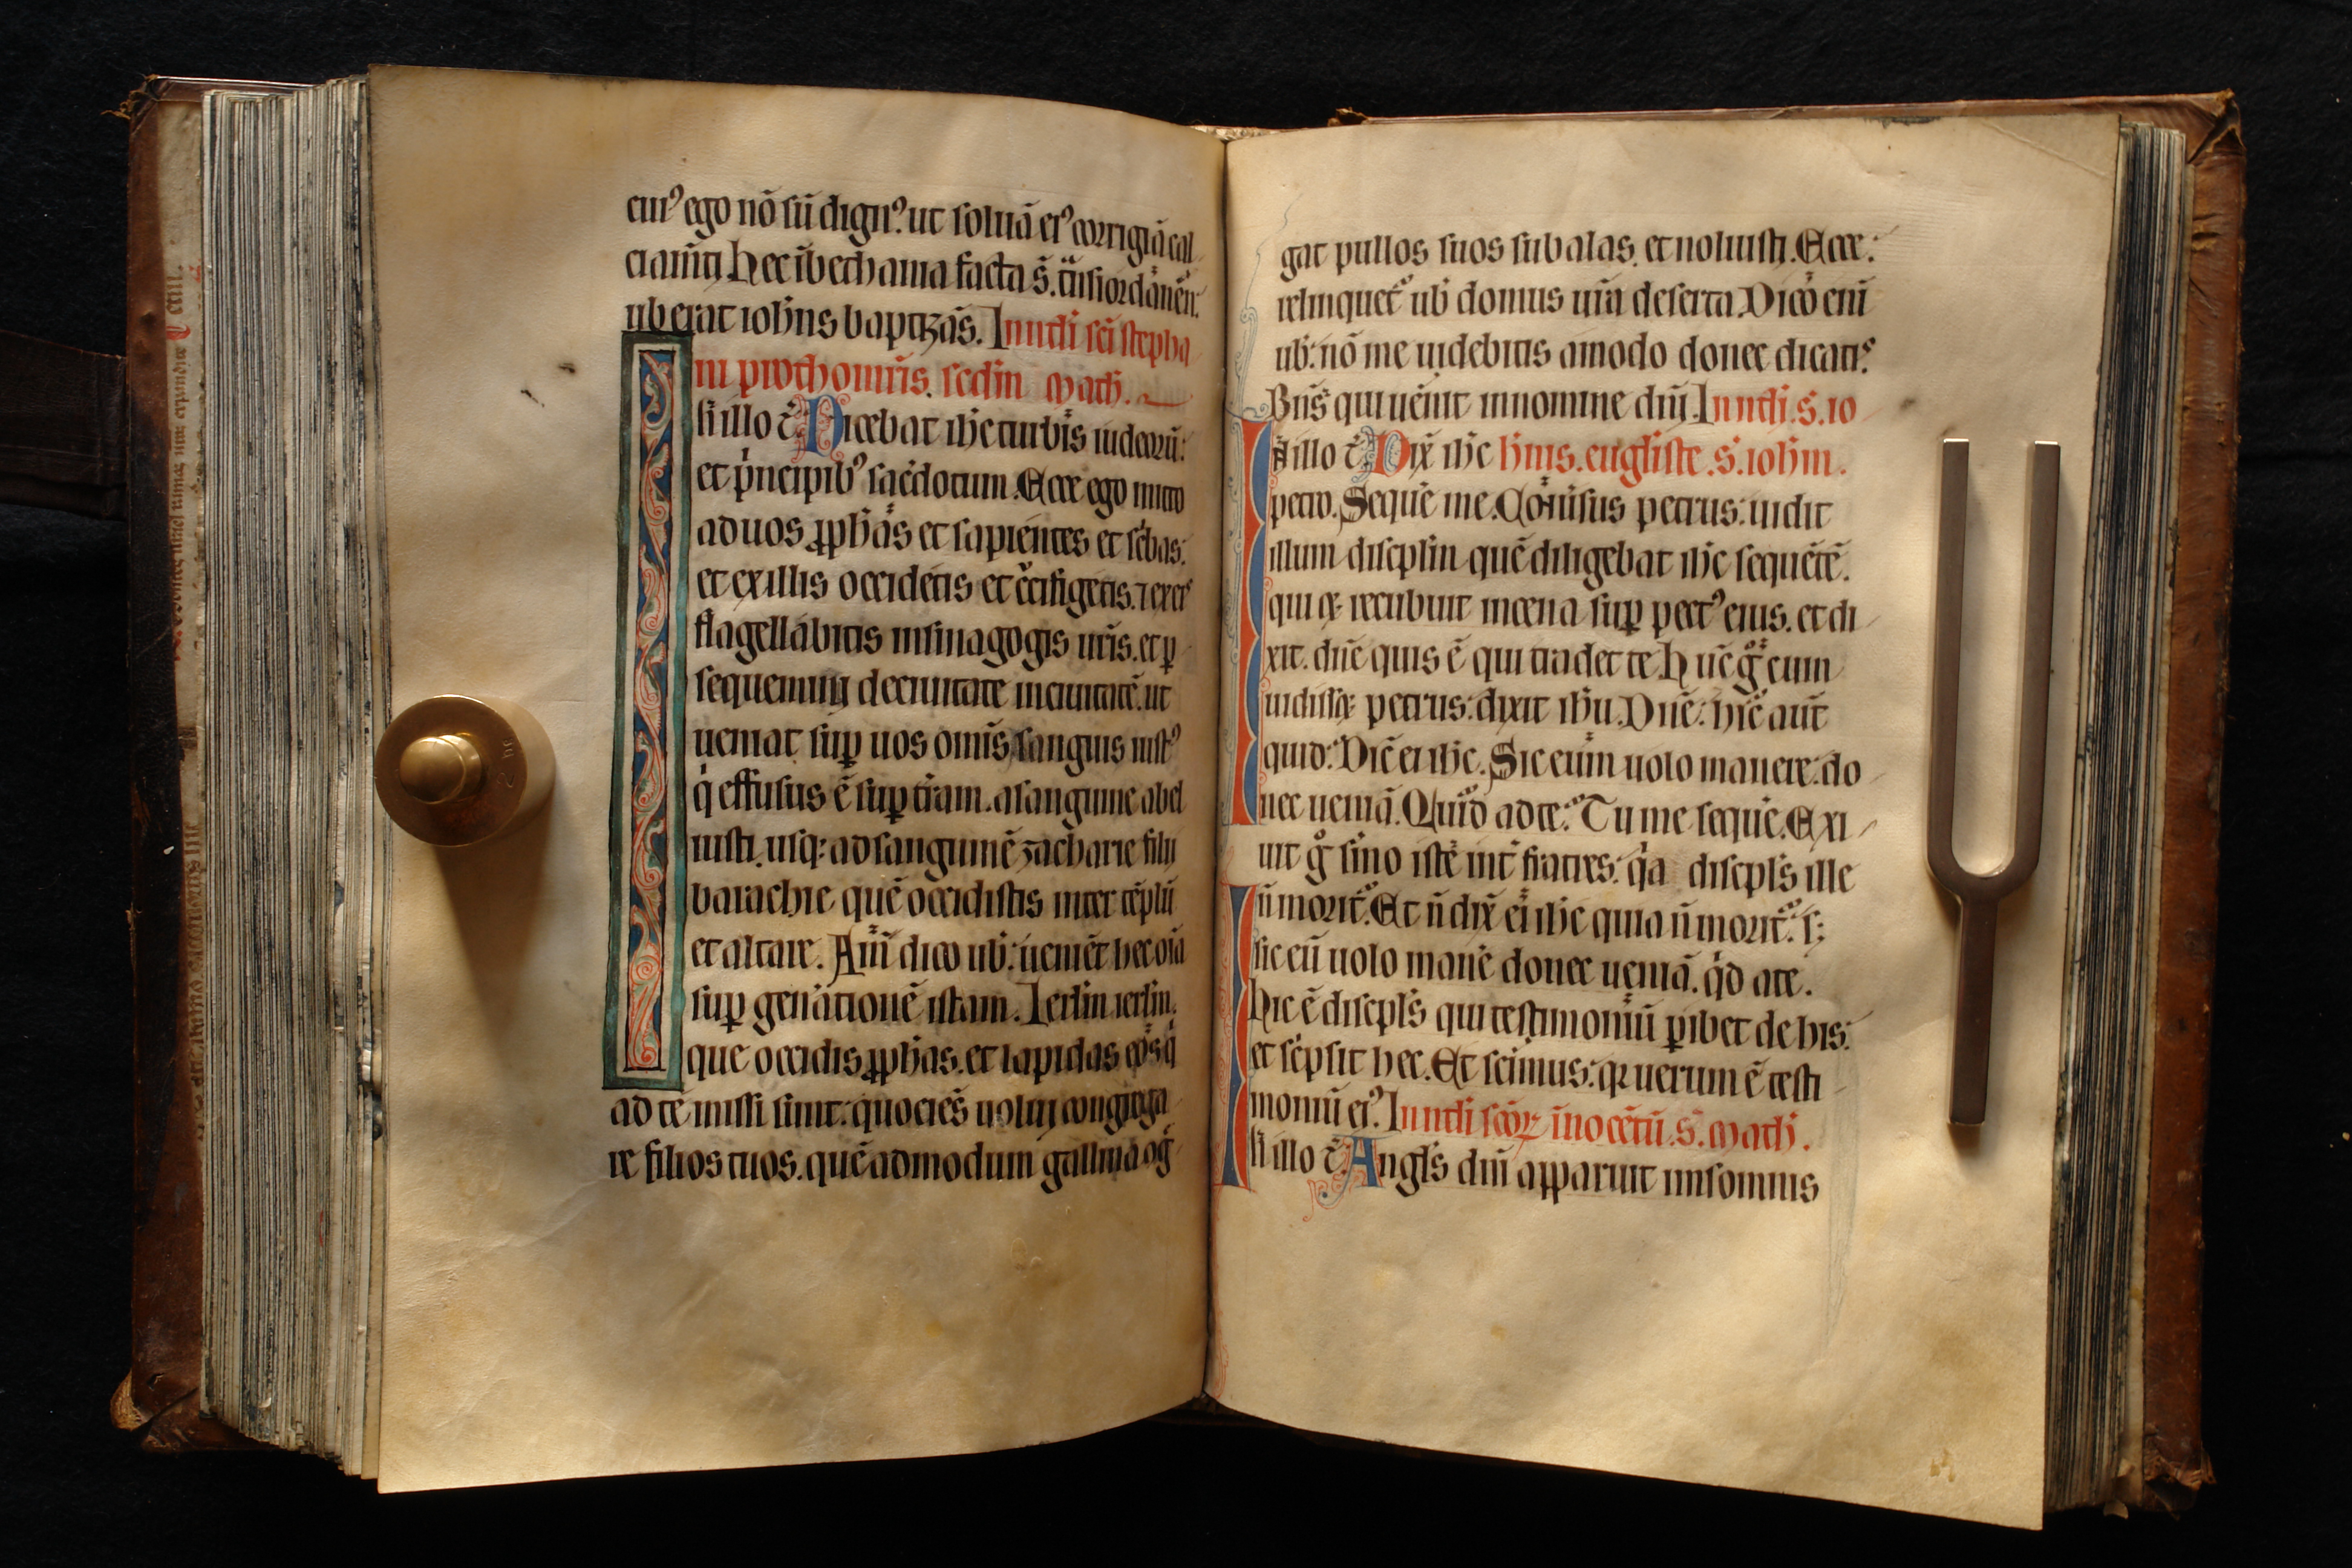 cui᾽ ego nō sū dign᾽. ut soluā ei᾽ corrigiā cal
ciam̄ti hec ī bethania facta s̄. t̄nsiordānen.
ubi erat ioh̄ns baptizās. In nt̄li sc̄i stepha
ni prothom̄ris. secd̄m math.
N illo t̄. Dicebat ih̄c turbis iudeorū:
et pͥncipib᾽ sac̄dotum. Ecce ego mitto
ad uos ꝓph̄as et sapientes et sc̄bas:
et ex illis occidetis et c̄cifigetis. ⁊ ex eis
flagellabitis in sinagogis ur̄is. et ꝑ
sequemini de ciuitate in ciuitatē. ut
ueniat suꝑ uos omīs sanguis iust᾽
qͥ effusus ē suꝑ tr̄am. a sanguine abel
iusti. usq: ad sanguinē zacharie filii
barachie quē occidistis inter tēplū
et altare. Am̄ dico ub̄: uenient hec oīa
suꝑ gen̄ationē istam. Ierl̄m ierl̄m.
que occidis ꝓph̄as. et lapidas eos qͥ
ad te missi sunt: quociēs uolui congrega
re filios tuos. quēadmodum gallina cōḡ
gat pullos suos sub alas. et noluisti. Ecce:
relinquet᾽ ub̄ domus ur̄a deserta. Dico enī
ub̄: nō me uidebitis amodo donec dicatis
Bn̄s qui uenit in nomine dn̄i. In nt̄li. s. io
N illo t̄. Dix̄ ih̄c h̄nis. eugl̄iste. s. ioh̄m.
petro. Sequē me. Cōuisus petrus: uidit
illum discipl̄m quē diligebat ih̄c sequētē.
qui ⁊ recubuit in cena suꝑ pect᾽ eius. et di
xit. dn̄e quis ē qui tradet te. Hūc gͦ cum
uidissꝫ petrus: dixit ih̄u. Dn̄e: hic aūt
quid: Dic̄ ei ih̄c. Sic eum uolo manere: do
nec ueniā. Quid ad te: Tu me sequē. Exi
uit gͦ s̄mo iste int̄ fratres: qͥa discipl̄s ille
n̄ morit᾽. Et n̄ dix̄ ei ih̄c quia n̄ morit᾽: s;
sic eū uolo manē donec ueniā. qͥd a te.
Hic ē discipl̄s qui testimoniū ꝑibet de his:
et sc̄psit hec. Et scimus: qꝛ uerum ē testi
moniū ei᾽. In nt̄li sc̄oꝝ īnocētū. s. math.
N illo t̄. Angl̄s dn̄i apparuit in somnis